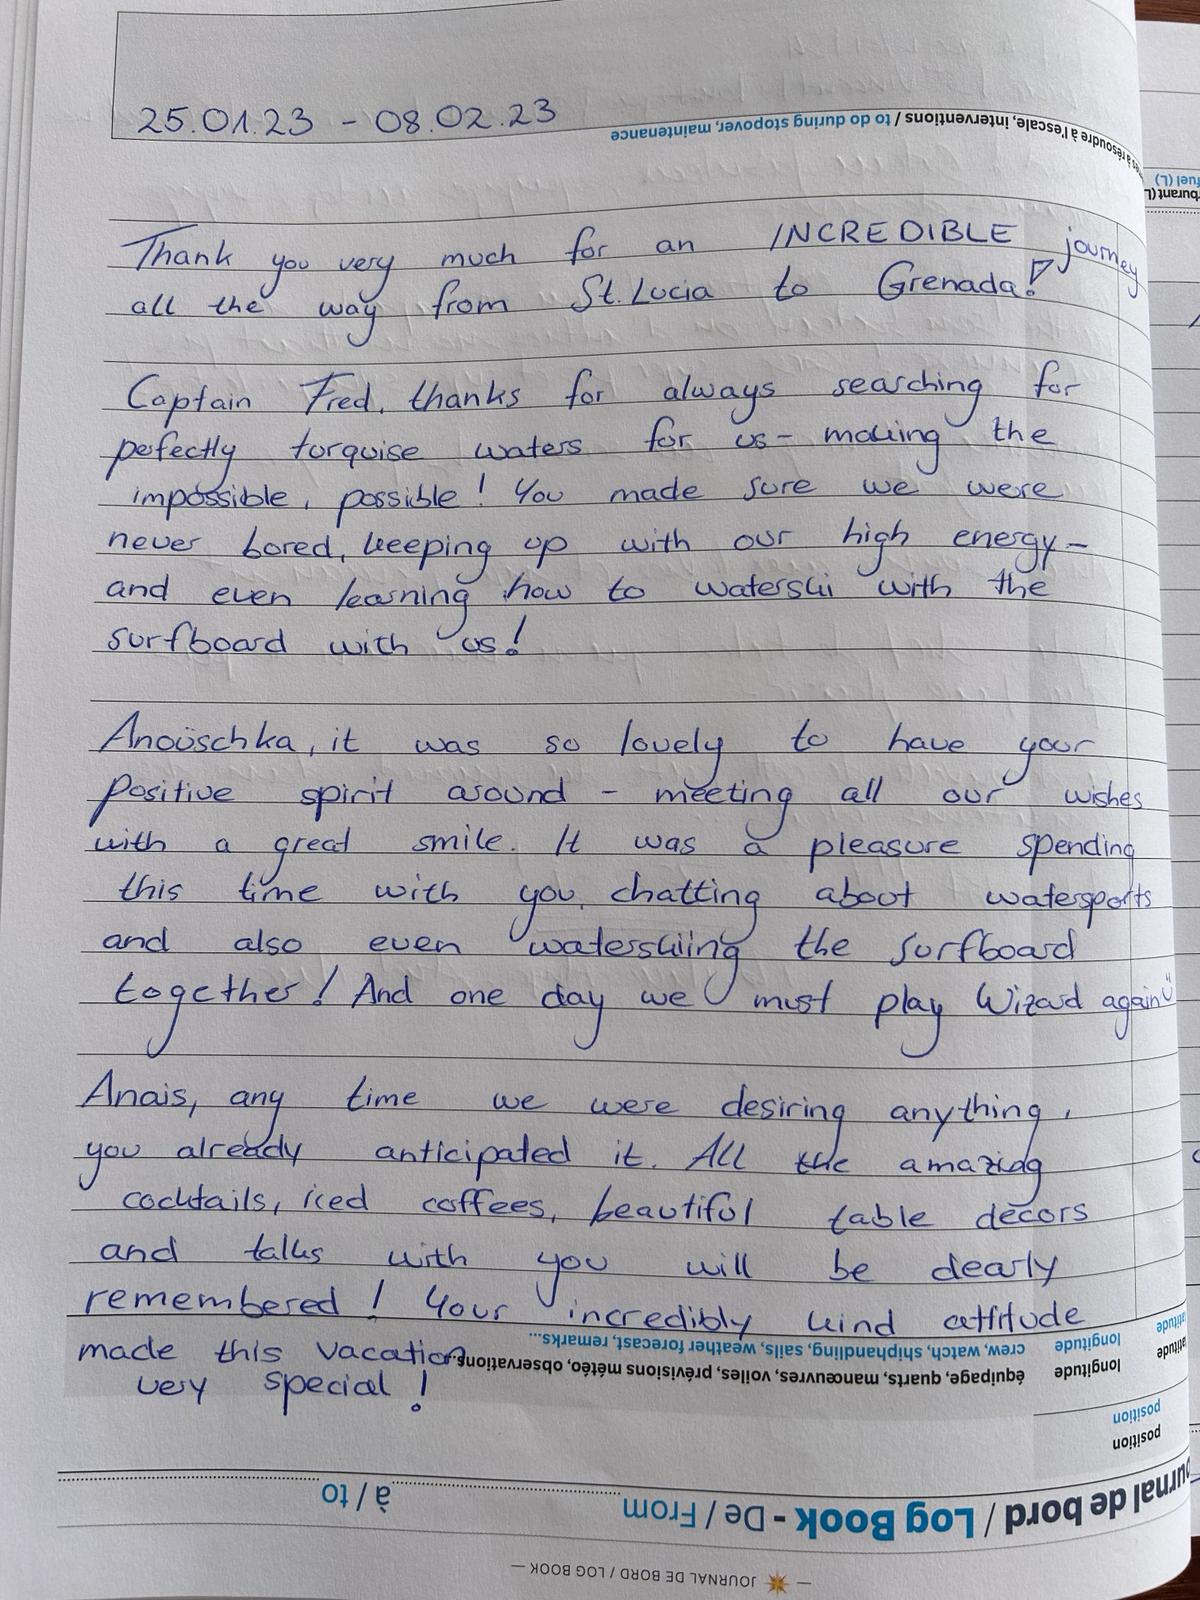 25.01.23 - 08.02.23
problèmes à résoudre à l'escale, interventions / to do during stopover, maintenance
Thank you very much for an INCREDIBLE journey
all the way from St. Lucia to Grenada!
Captain Fred, thanks for always searching for
perfectly torquise waters for us - making the
impossible, possible! You made sure we were
never bored, keeping up with our high energy -
and even learning how to waterski with the
surfboard with us!
Anouschka, it was so lovely to have your
positive spirit around - meeting all our wishes
with a great smile. It was a pleasure spending
this time with you, chatting about watersports
and also even waterskiing the surfboard
together! And one day we must play Wizard again :)
Anais, any time we were desiring anything,
you already anticipated it. All the amazing
cocktails, iced coffees, beautiful table decors
and talks with you will be dearly
remembered! Your incredibly kind attitude
made this vacation
very special!
longitude
crew, watch, shiphandling, sails, weather forecast, remarks...
longitude
équipage, quarts, manœuvres, voiles, prévisions météo, observations...
position
position
Journal de bord / Log Book - De / From
à / to
— JOURNAL DE BORD / LOG BOOK —
fuel (L)